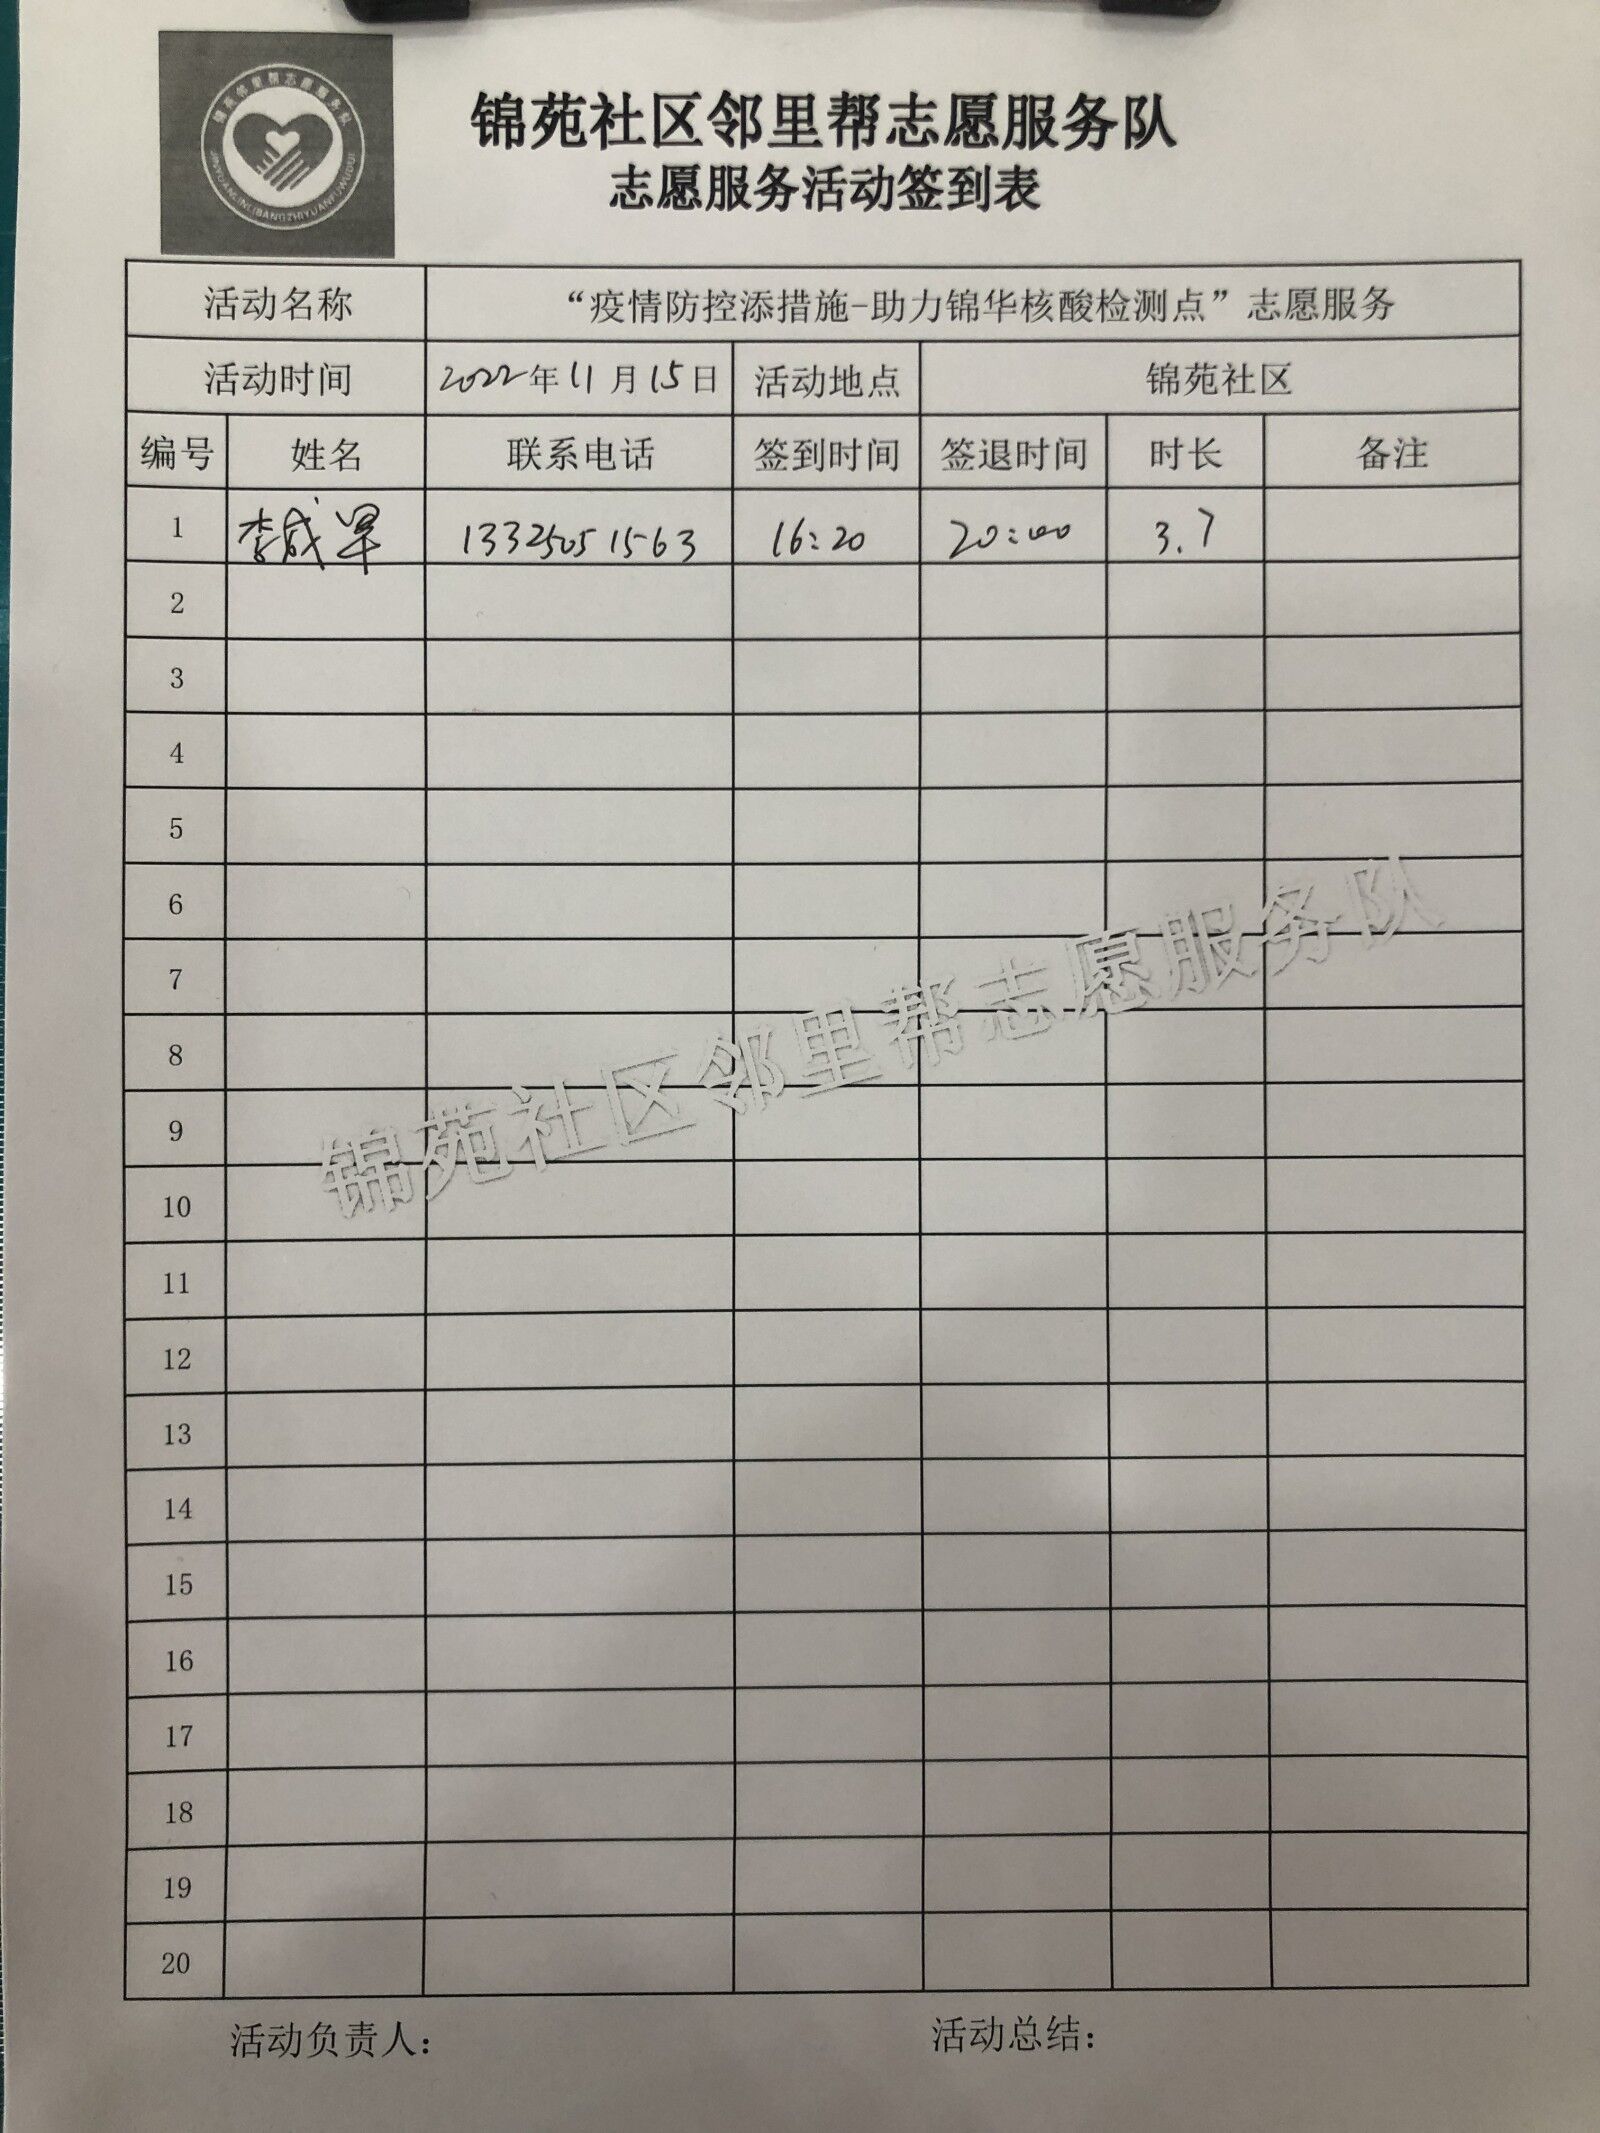 锦苑邻里帮志愿服务队
JINYUANLINLIBANGZHIYUANFUWUDUI
锦苑社区邻里帮志愿服务队
志愿服务活动签到表
活动名称 “疫情防控添措施-助力锦华核酸检测点”志愿服务
活动时间 2022年11月15日 活动地点 锦苑社区
编号 姓名 联系电话 签到时间 签退时间 时长 备注
1 李 13325051563 16:20 20:00 3.7
2
3
4
5
6
7
8
9
10
11
12
13
14
15
16
17
18
19
20
锦苑社区邻里帮志愿服务队
活动负责人： 活动总结：